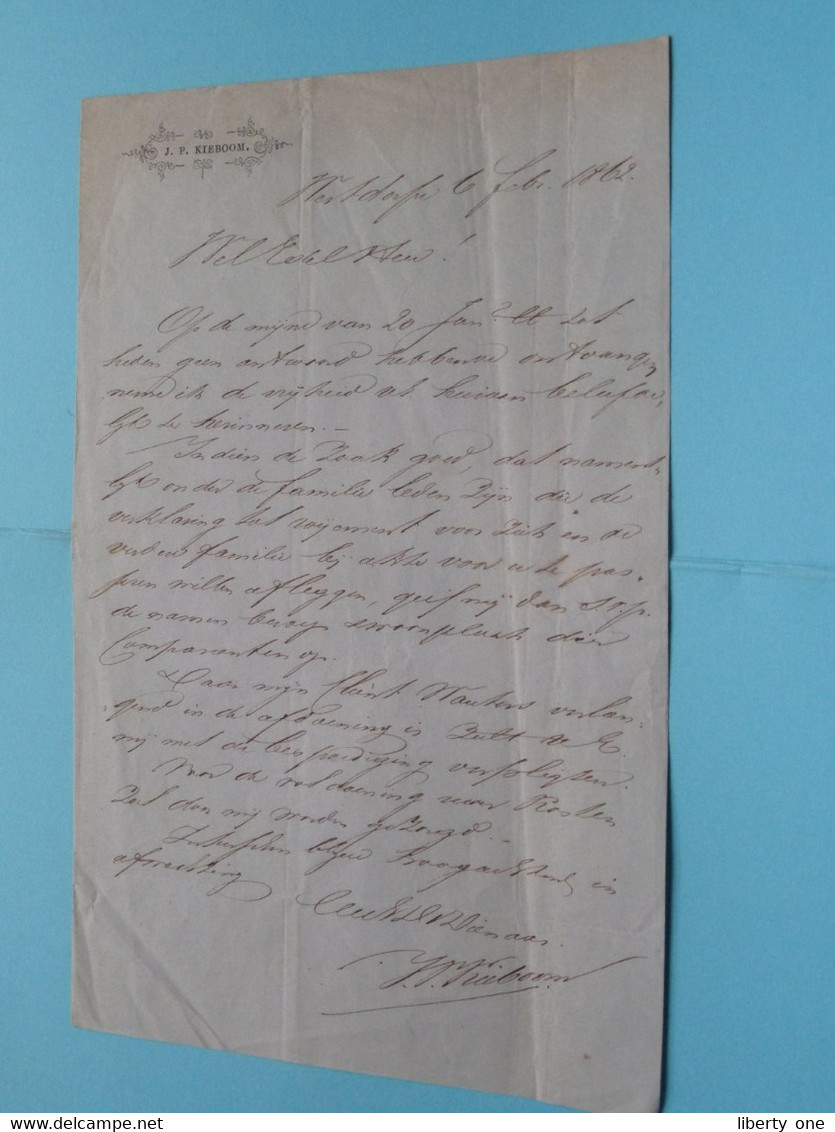 J. P. KIEBOOM.
Westdorpe 6 Febr. 1862.
Wel Edel Heer!
Op de mijne van 20 Jan. tot
heden geen antwoord hebbende ontvangen
neem ik de vrijheid UE hieraan beleefde-
lijk te herinneren. —
Indien de zaak goed, dat nament-
lijk onder de familie leden zijn die de
verklaring tot voor zich en de
verdere familie bij akte voor u te pas-
seren willen afleggen, geef mij dan s.v.p.
de namen beroep woonplaats dier
Comparanten op.
Daar mijn Client Wauters verlan-
gend in de afdoening is zult UE
mij met de bespoediging verpligten.
Voor de voldoening uwer Kosten
zal door mij worden gezorgd. —
Intusschen blijve hoogachtend in
afwachting
UEd Dienaar.
J. P. Kieboom
liberty one